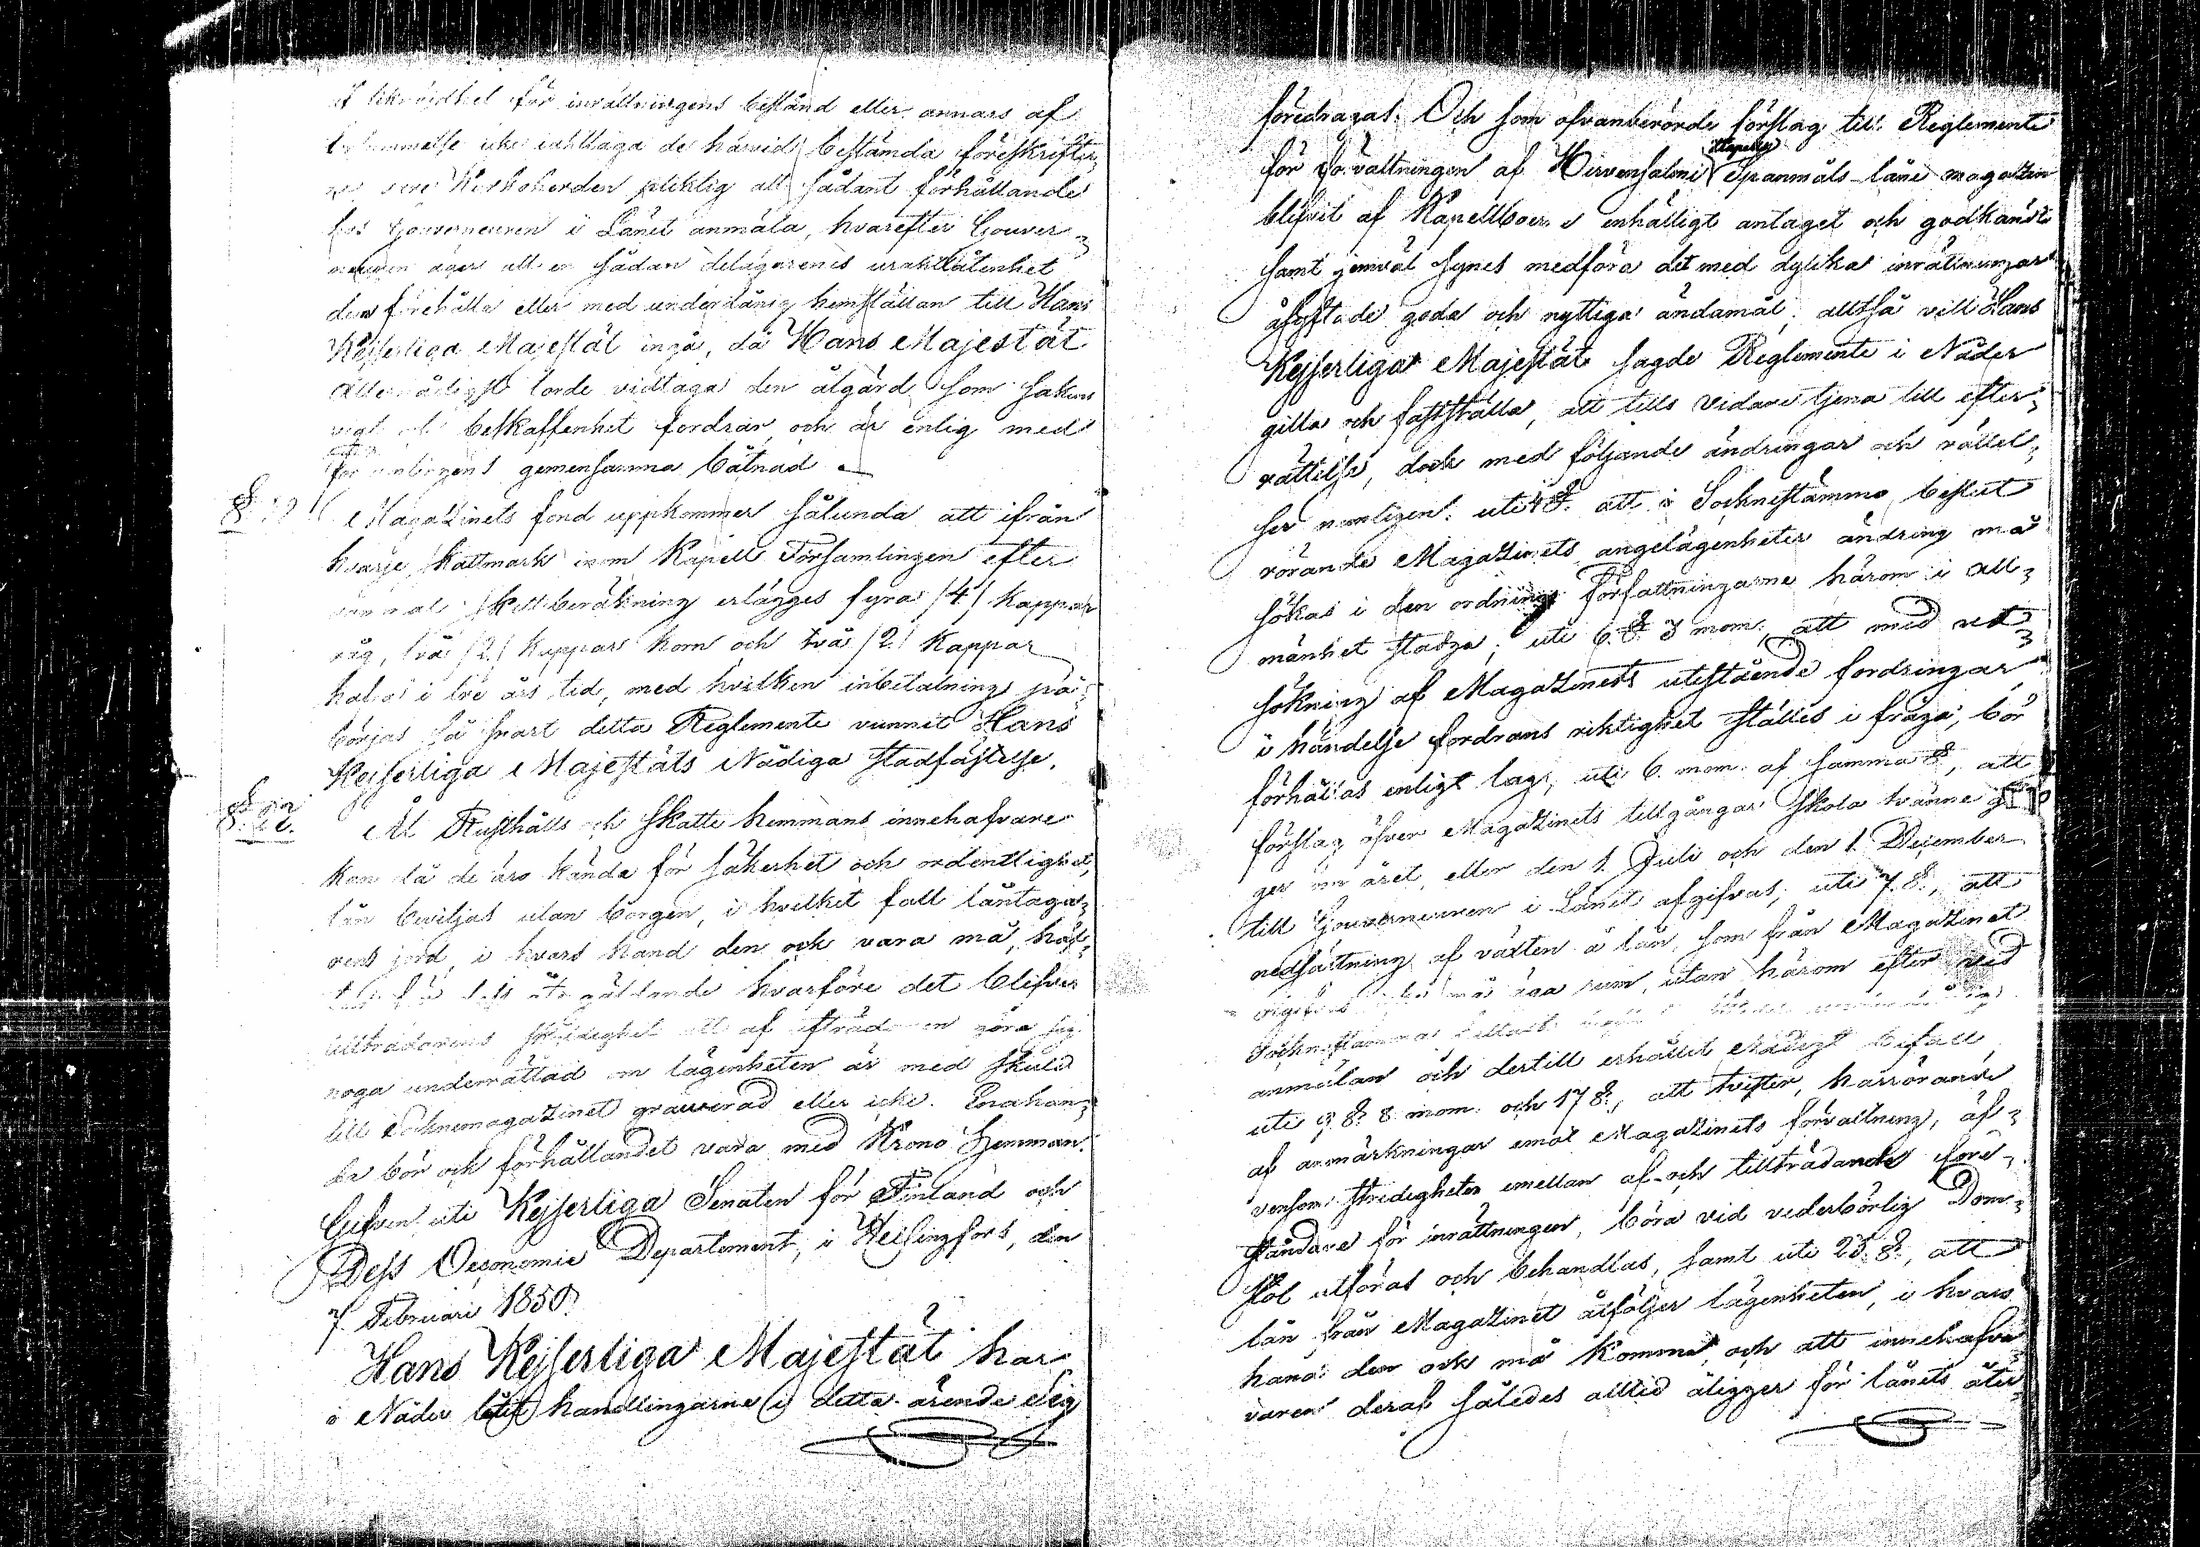 af likgiltighet för inrättningens bestånd eller annars af
icke iakttaga de härvid bestämda föreskrifter,
vare Kyrkoherden pligtig att sådant förhållande
hos Gouverneuren i Länet anmäla, hvarefter Gouver-
neuren äger att en sådan delägarenes uraktlåtenhet
dem förehålla eller med underdånig hemställan till Hans
Kejserliga Majestät ingå, då Hans Majestät
Allernådigst torde vidtaga den åtgärd som sakens
vigt och beskaffenhet fordrar och är enlig med
församlingens gemensamma båtnad.
§
Magazinets fond uppkommer sålunda att ifrån
hvarje skattmark inom Kapell Församlingen efter
skattberäkning erlägges fyra /4/ Kappar
råg, två /2/ Kappar korn och två /2/ Kappar
hafra i tre års tid, med hvilken inbetalning på-
börjas så snart detta Reglemente vunnit Hans
Keiserliga Majestäts Nådiga stadfästelse.
§
At Rusthålls och Skatte hemmans innehafvare
kan då de äro kända för säkerhet och ordentlighet,
lån beviljas utan borgen, i hvilket fall låntaga-
rens jord, i hvars hand den ock vara må, häf-
tar för dess återgäldande hvarföre det blifver
tillträdarens skyldighet att af afträdaren göra sig
noga underrättad om lägenheten är med skuld
till Socknemagazinet graverad eller icke. Enahan-
da bör ock förhållandet vara med Krono Hemman.
Gifven uti Kejserliga Senaten för Finland och
Dess Oeconomie Departement, i Helsingfors, den
7 Februari 1850.
Hans Kejserliga Majestät har
i Nåder låtit handlingarne i detta ärende Sig
föredragas. Och som ofvanberörde förslag till Reglemente
för förvaltningen af Hirvensalmi Kapells Spanmåls-låne magazin
blifvit af Kapellboerne enhälligt antaget och godkändt
samt jemväl synes medföra det med dylika inrättningar
åsyftade goda och nyttiga ändamål; alltså vill Hans
Kejserliga Majestät sagde Reglemente i Nåder
gilla och fastställa, att tills vidare tjena till efter-
rättelse, dock med följande ändringar och rättel-
ser nemligen: uti 4 §. att i Socknestämmo beslut
rörande Magazinets angelägenheter ändring må
sökas i den ordning Författningarne härom i all-
mänhet stadga; uti 6 § 3 mom: att med ut-
sökning af Magazinets utestående fordringar
i händelse fordrans riktighet ställes i fråga, bör
förhållas enligt lag; uti 6. mom. af samma §, att
förslag öfver Magazinets tillgångar skola tvänne gån-
ger om året, eller den 1 Juli och den 1 December
till Gouverneuren i Länet afgifvas; uti 7 §., att
nedsättning af växten å lån, som från Magazinet
utgifvas icke må äga rum, utan härom efter vid
Sockenstämma
anmälan och dertill erhållit Nådigt bifall,
uti 9 § 8 mom: och 17 §., att tvister, härrörande
af anmärkningar emot Magazinets förvaltning, äf-
vensom stridigheter emellan af- och tillträdande före-
ståndare för inrättningen, böra vid vederbörlig Dom-
stol utföras och behandlas, samt uti 23 §., att
lån från Magazinet åtföljer lägenheten, i hvars
hand den ock må komma och att innehafva-
varen deraf således alltid åligger för lånets åter-